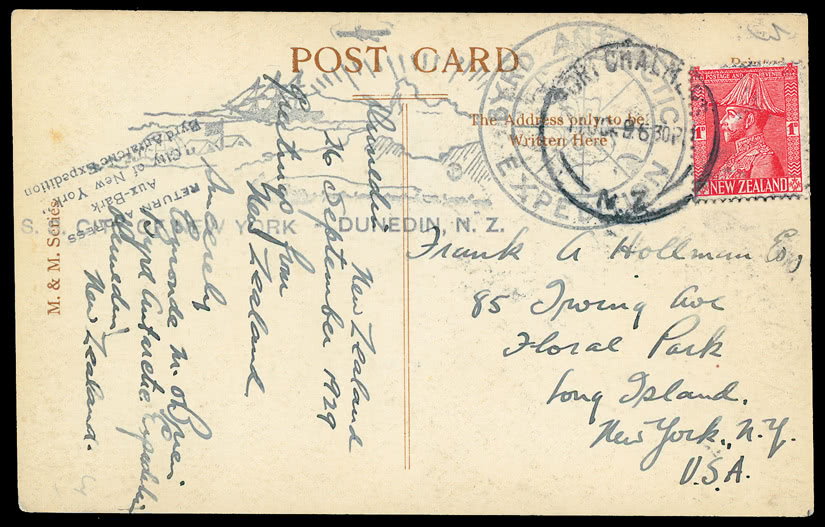 POST CARD
The Address only to be
Written Here
M. & M. Series
BYRD ANTARCTIC
EXPEDITION
PORT CHALMERS
N.Z.
POSTAGE AND REVENUE
1D 1D
NEW ZEALAND
S.S. CITY OF NEW YORK - DUNEDIN, N. Z.
RETURN ADDRESS
Aux-Bark
"City of New York"
Byrd Antarctic Expedition
Dunedin
New Zealand
26 September 1929
Greetings from
New Zealand
Sincerely
M.
Byrd Antarctic Expedition
Dunedin
New Zealand.
Frank A Hollman Esq
85 Irving Ave
Floral Park
Long Island.
New York, N.Y.
U.S.A.